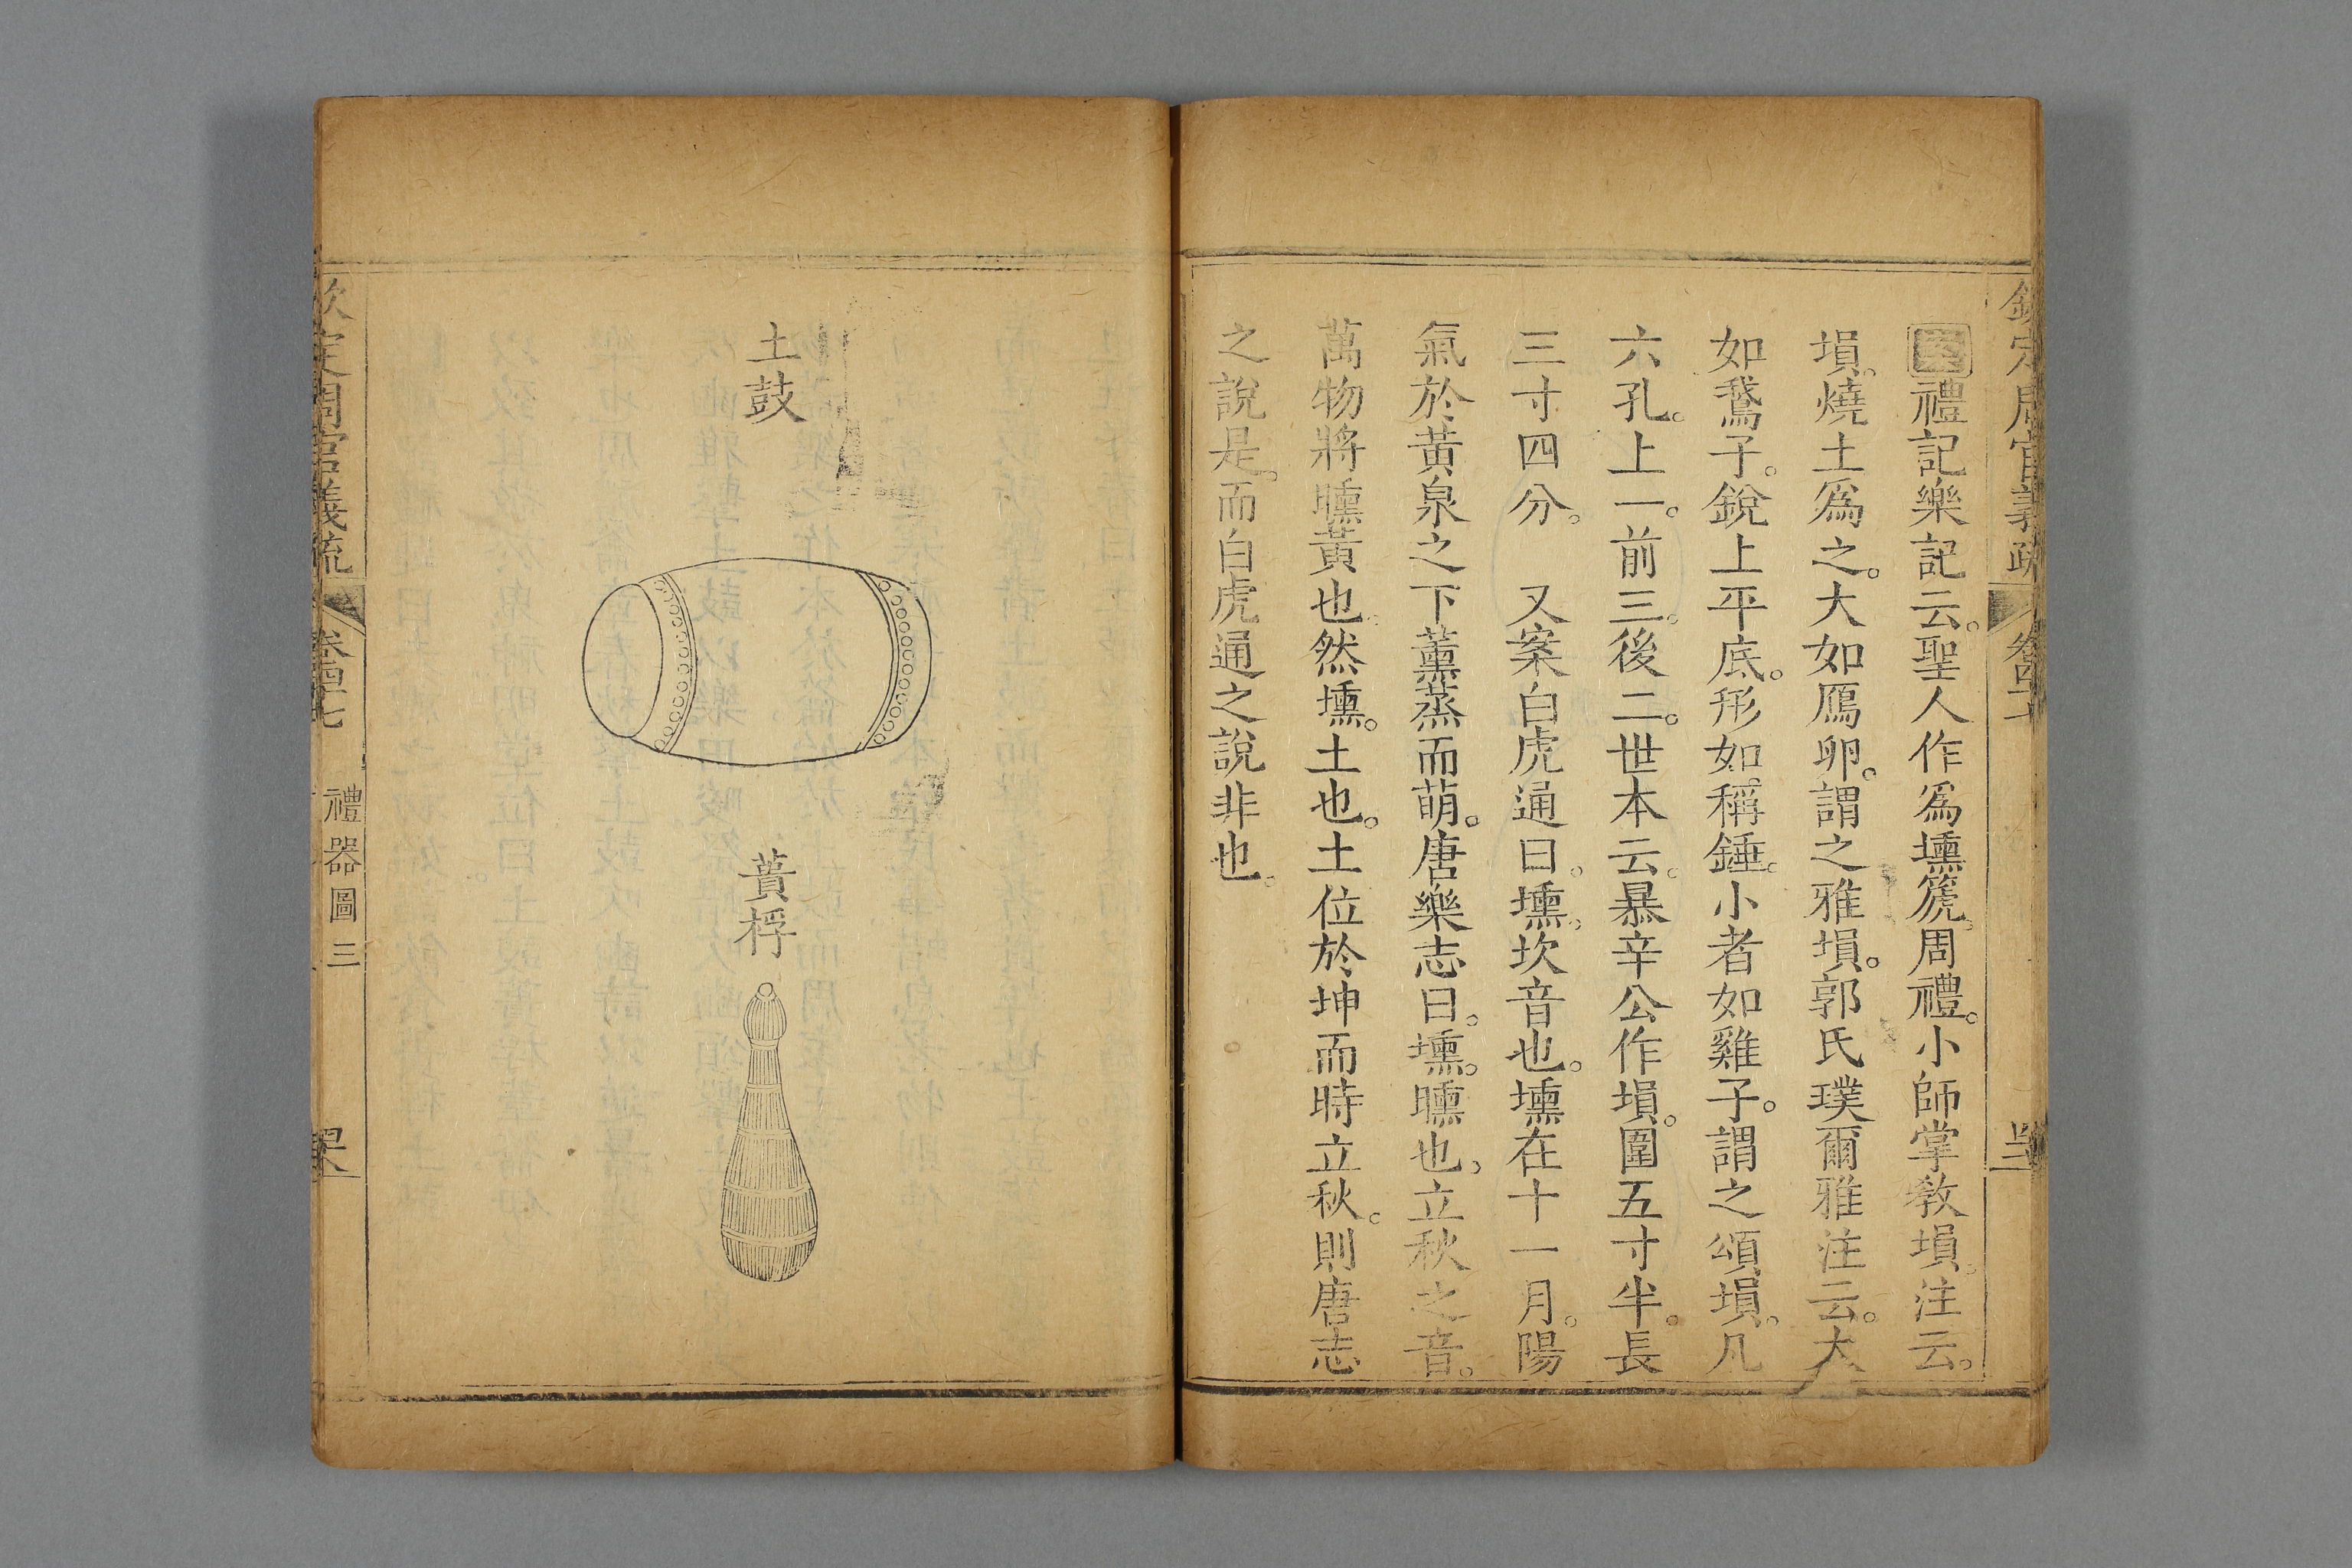 欽定周官義疏 卷四十七
案禮記樂記云。聖人作爲壎箎。周禮。小師掌敎塤。注云。
塤。燒土爲之。大如鴈卵。謂之雅塤。郭氏璞爾雅注云。大
如鵞子。銳上平底。形如稱錘。小者如雞子。謂之頌塤。凡
六孔。上一。前三。後二。世本云。暴辛公作塤。圍五寸半。長
三寸四分。　又案白虎通曰。壎。坎音也。壎在十一月。陽
氣於黃泉之下薰蒸而萌。唐樂志曰。壎。曛也。立秋之音。
萬物將曛黃也。然壎。土也。土位於坤而時立秋。則唐志
之說是。而白虎通之說非也。
土鼓
蕢桴
欽定周官義疏 卷四十七 禮器圖三